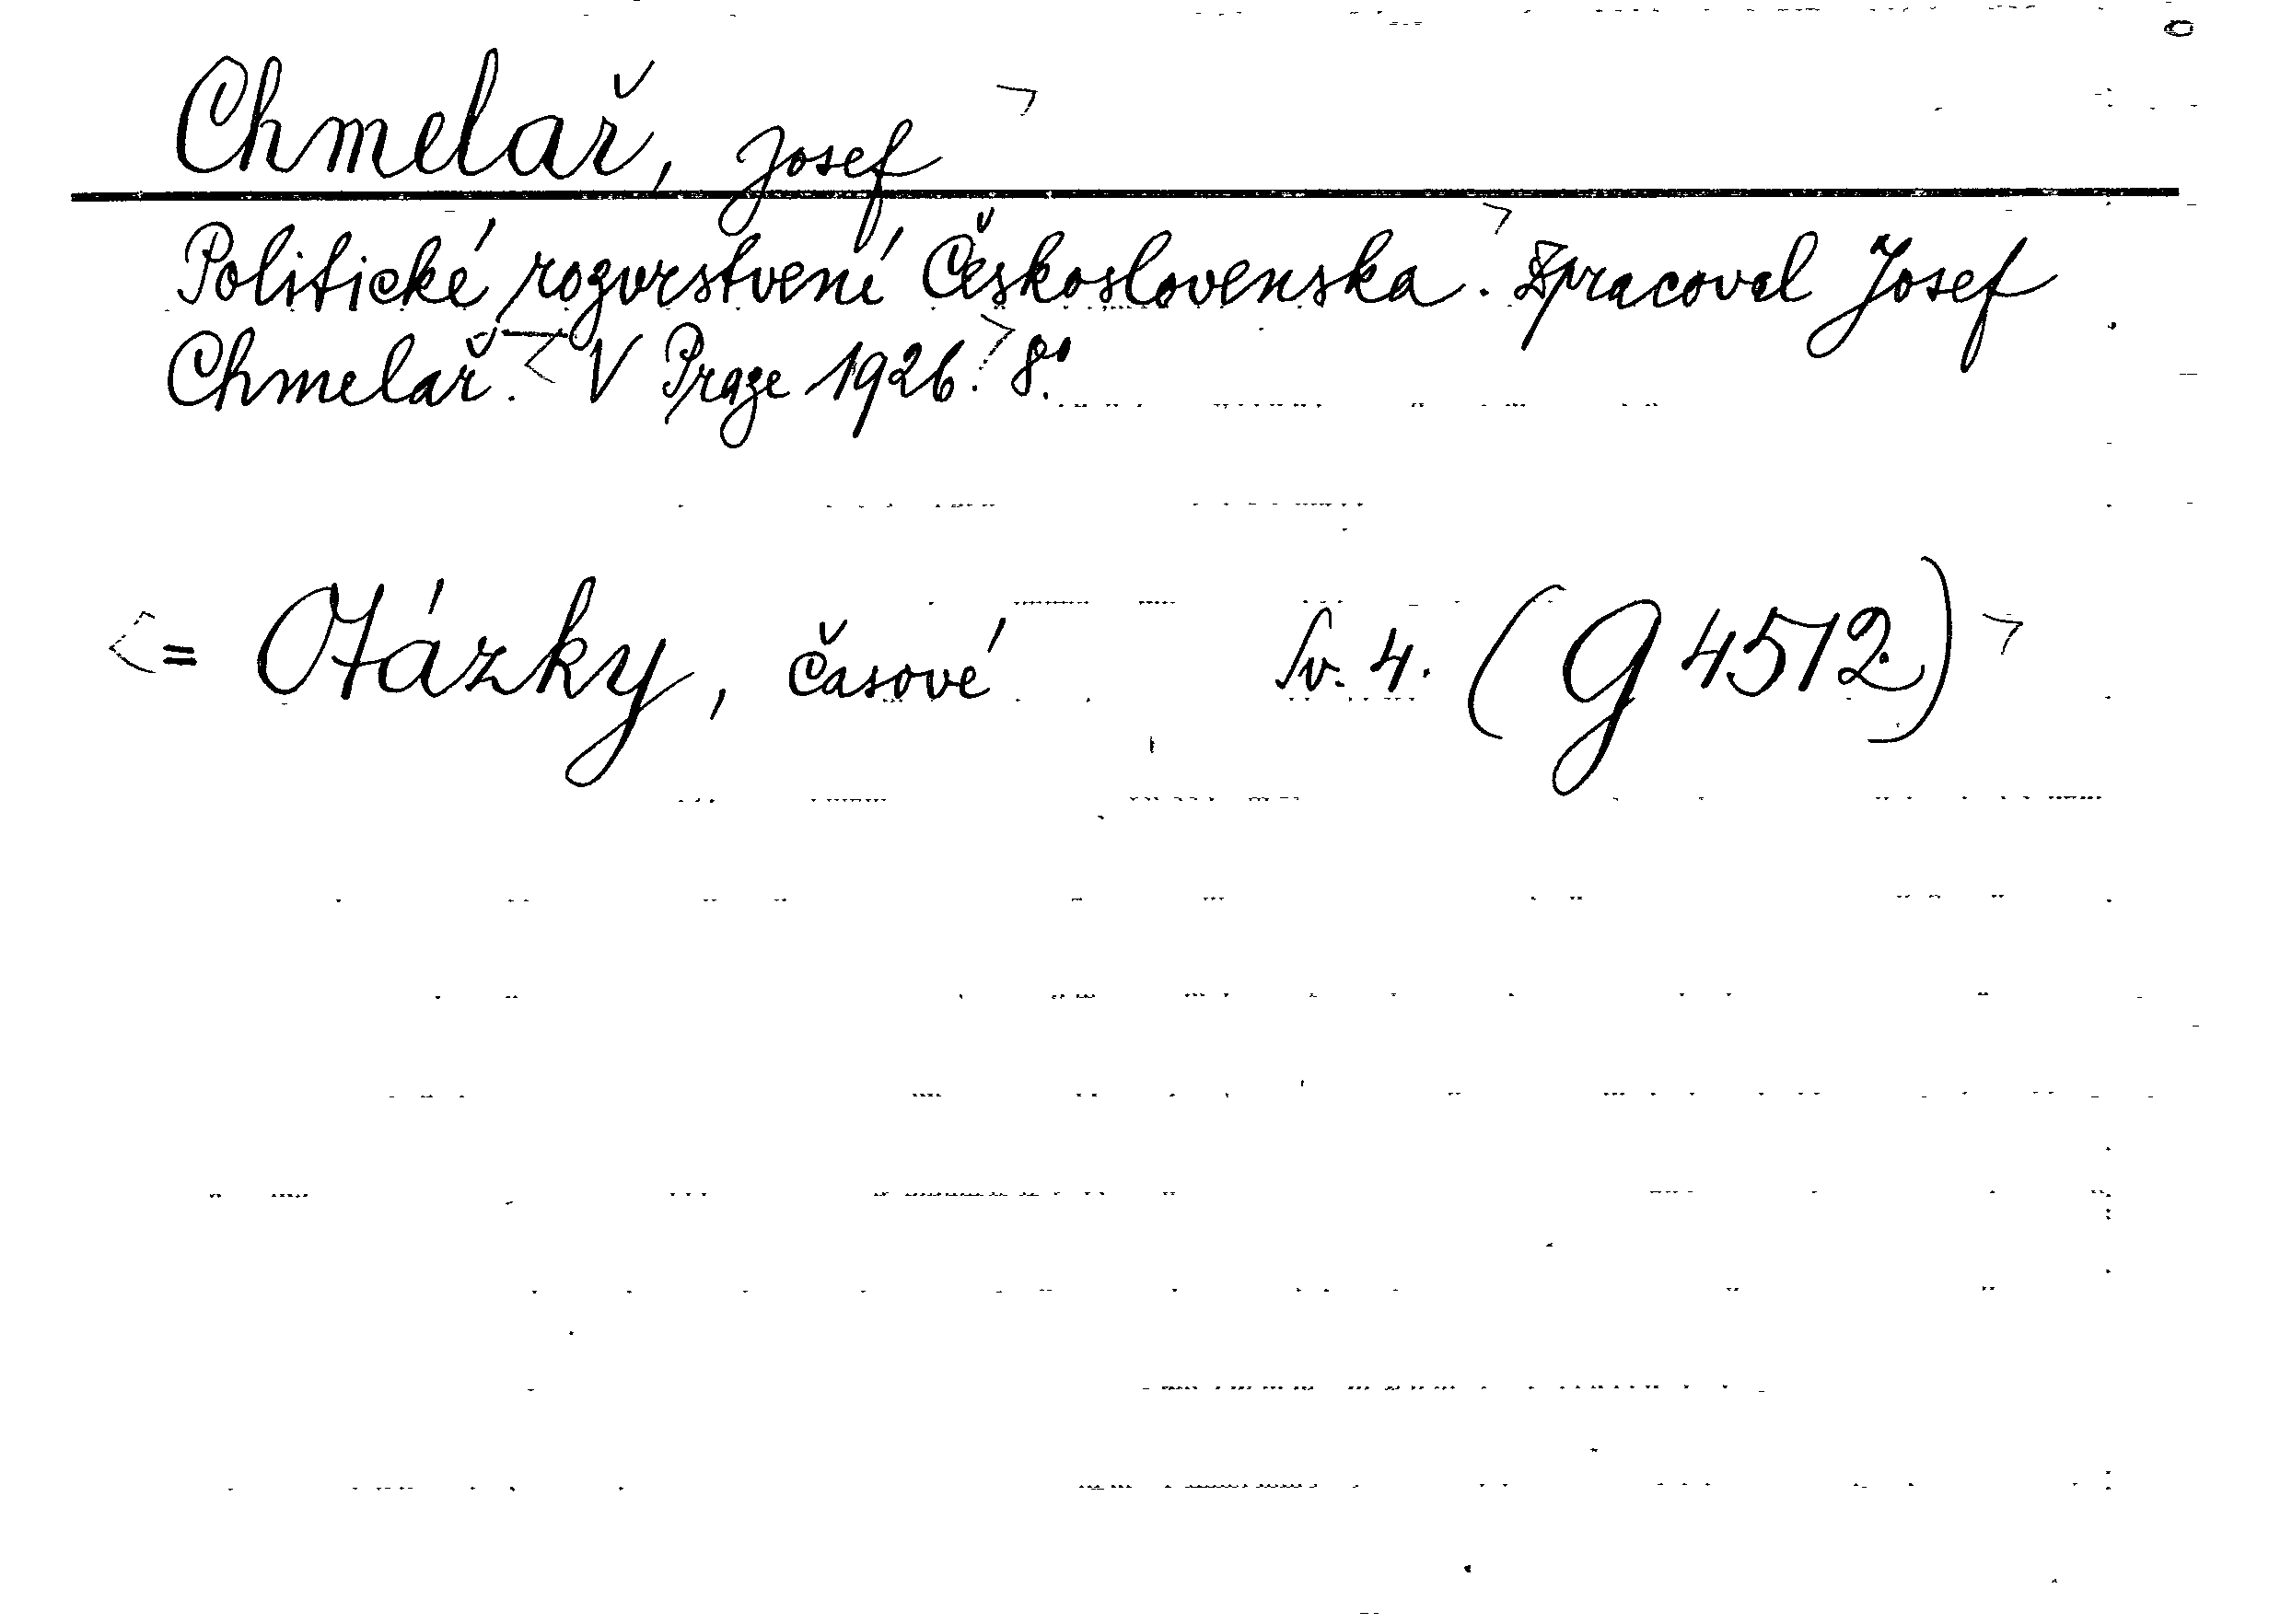 Chmelař, Josef
Politické rozvrstvení Československa. Zpracoval Josef
Chmelař. V Praze 1926. 8º.
= Otázky, časové Sv. 4. (G 4512)